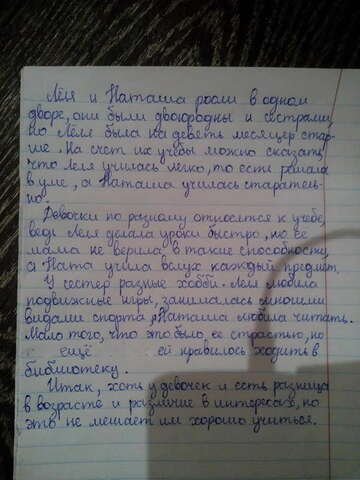 Лёля и Наташа росли в одном
дворе, они были двоюродны и сестрами,
но Лёля была на девять месяцер стар-
ше. На счет их учёбы можно сказать,
что Леля училась легко, то есть решала
в уме, а Наташа училась старатель-
но.
Девочки по разному относятся к учебе,
ведь Леля делала уроки быстро, но ее
мама не верила в такие способности,
а Ната учила вслух каждый предмет.
У сестер разные хобби. Леля любила
подвижные игры, занималась многими
видами спорта, Наташа любила читать.
Мало того, что это было ее страстью, но
и ещё ей нравилось ходить в
библиотеку.
Итак, хоть у девочек и есть разница
в возрасте и различие в интересах, но
это не мешает им хорошо учиться.